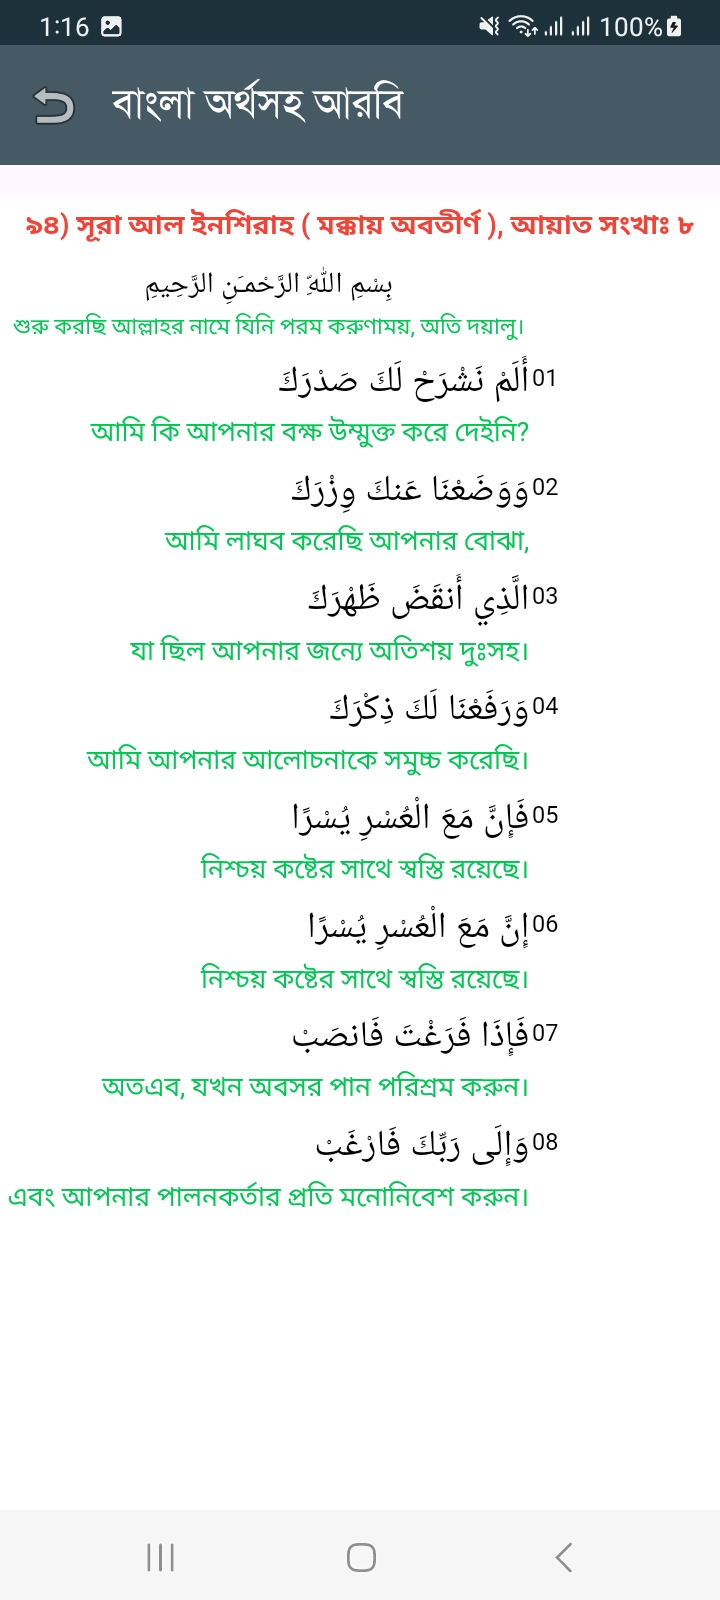 1:16 100%
বাংলা অর্থসহ আরবি
৯৪) সূরা আল ইনশিরাহ ( মক্কায় অবতীর্ণ ), আয়াত সংখাঃ ৮
بِسْمِ اللّهِ الرَّحْمـَنِ الرَّحِيمِ
শুরু করছি আল্লাহর নামে যিনি পরম করুণাময়, অতি দয়ালু।
01 أَلَمْ نَشْرَحْ لَكَ صَدْرَكَ
আমি কি আপনার বক্ষ উম্মুক্ত করে দেইনি?
02 وَوَضَعْنَا عَنكَ وِزْرَكَ
আমি লাঘব করেছি আপনার বোঝা,
03 الَّذِي أَنقَضَ ظَهْرَكَ
যা ছিল আপনার জন্যে অতিশয় দুঃসহ।
04 وَرَفَعْنَا لَكَ ذِكْرَكَ
আমি আপনার আলোচনাকে সমুচ্চ করেছি।
05 فَإِنَّ مَعَ الْعُسْرِ يُسْرًا
নিশ্চয় কষ্টের সাথে স্বস্তি রয়েছে।
06 إِنَّ مَعَ الْعُسْرِ يُسْرًا
নিশ্চয় কষ্টের সাথে স্বস্তি রয়েছে।
07 فَإِذَا فَرَغْتَ فَانصَبْ
অতএব, যখন অবসর পান পরিশ্রম করুন।
08 وَإِلَى رَبِّكَ فَارْغَبْ
এবং আপনার পালনকর্তার প্রতি মনোনিবেশ করুন।